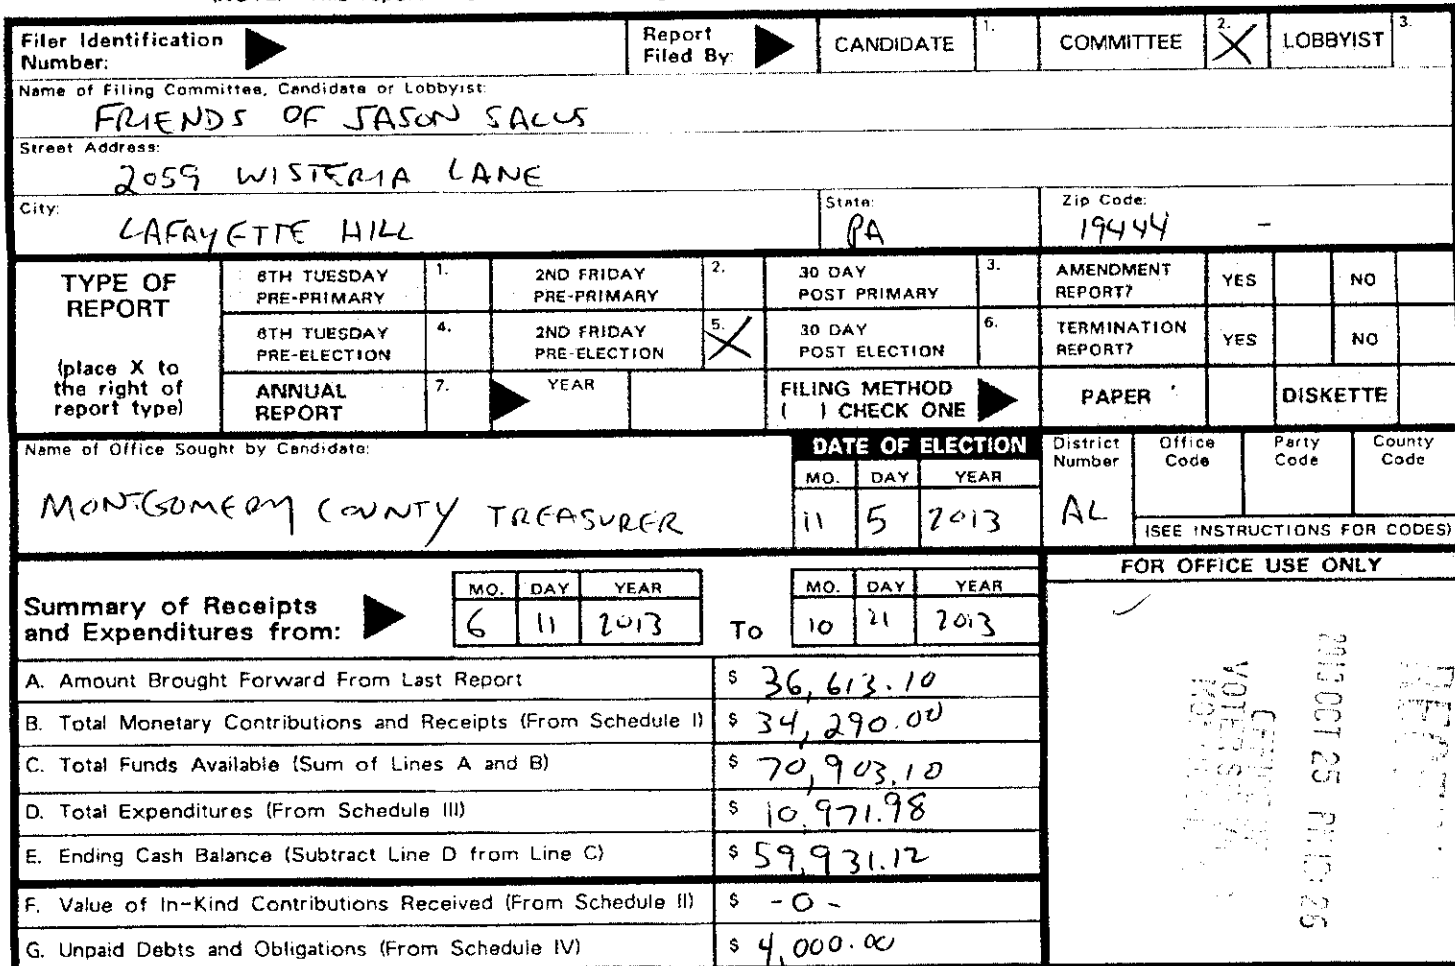 Filer Identification Number: Report Filed By: CANDIDATE 1. COMMITTEE 2. X LOBBYIST 3.
Name of Filing Committee, Candidate or Lobbyist:
FRIENDS OF JASON SALUS
Street Address:
2059 WISTERIA LANE
City: State: Zip Code:
LAFAYETTE HILL PA 19444 -
TYPE OF REPORT
(place X to the right of report type)
6TH TUESDAY PRE-PRIMARY 1. 2ND FRIDAY PRE-PRIMARY 2. 30 DAY POST PRIMARY 3. AMENDMENT REPORT? YES NO
6TH TUESDAY PRE-ELECTION 4. 2ND FRIDAY PRE-ELECTION 5. X 30 DAY POST ELECTION 6. TERMINATION REPORT? YES NO
ANNUAL REPORT 7. YEAR FILING METHOD ( ) CHECK ONE PAPER DISKETTE
Name of Office Sought by Candidate: DATE OF ELECTION District Number Office Code Party Code County Code
MO. DAY YEAR
MONTGOMERY COUNTY TREASURER 11 5 2013 AL
(SEE INSTRUCTIONS FOR CODES)
FOR OFFICE USE ONLY
Summary of Receipts and Expenditures from:
MO. DAY YEAR MO. DAY YEAR
6 11 2013 TO 10 21 2013
A. Amount Brought Forward From Last Report $ 36,613.10
B. Total Monetary Contributions and Receipts (From Schedule I) $ 34,290.00
C. Total Funds Available (Sum of Lines A and B) $ 70,903.10
D. Total Expenditures (From Schedule III) $ 10,971.98
E. Ending Cash Balance (Subtract Line D from Line C) $ 59,931.12
F. Value of In-Kind Contributions Received (From Schedule II) $ -0-
G. Unpaid Debts and Obligations (From Schedule IV) $ 4,000.00
2013 OCT 25